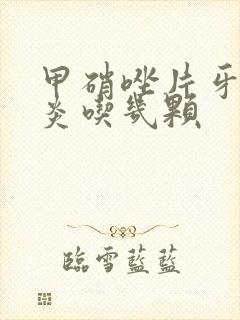 甲硝唑片牙
炎喫幾顆
臨雪藍藍